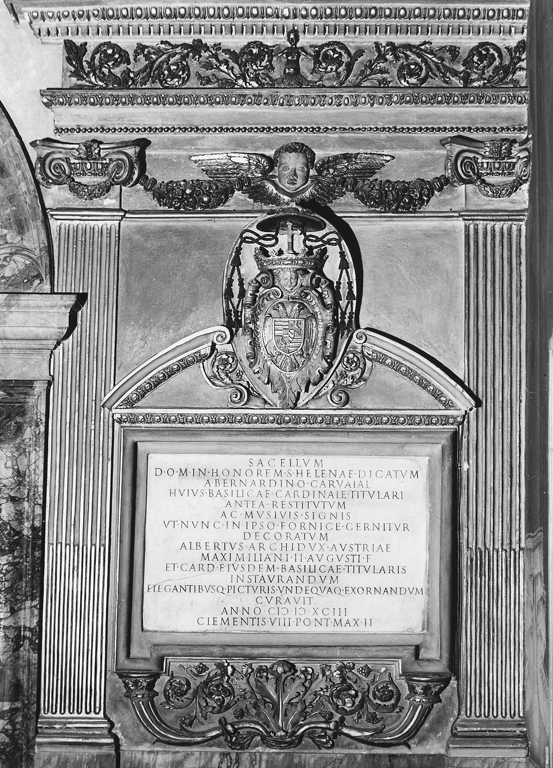 SACELLVM
D·O·M·IN·HONOREM·S·HELENAE·DICATVM
A·BERNARDINO·CARVAIAL
HVIVS·BASILICAE·CARDINALE·TITVLARI
ANTEA·RESTITVTVM
AC·MVSIVIS·SIGNIS
VT·NVNC·IN·IPSO·FORNICE·CERNITVR
DECORATVM
ALBERTVS·ARCHIDVX·AVSTRIAE
MAXIMILIANI·II·AVGVSTI·F
ET·CARD·EIVSDEM·BASILICAE·TITVLARIS
INSTAVRANDVM
ELEGANTIBVSQ·PICTVRIS·VNDEQVAQ·EXORNANDVM
CVRAVIT
ANNO·CIƆ·IƆ·XCIII
CLEMENTIS·VIII·PONT·MAX·II